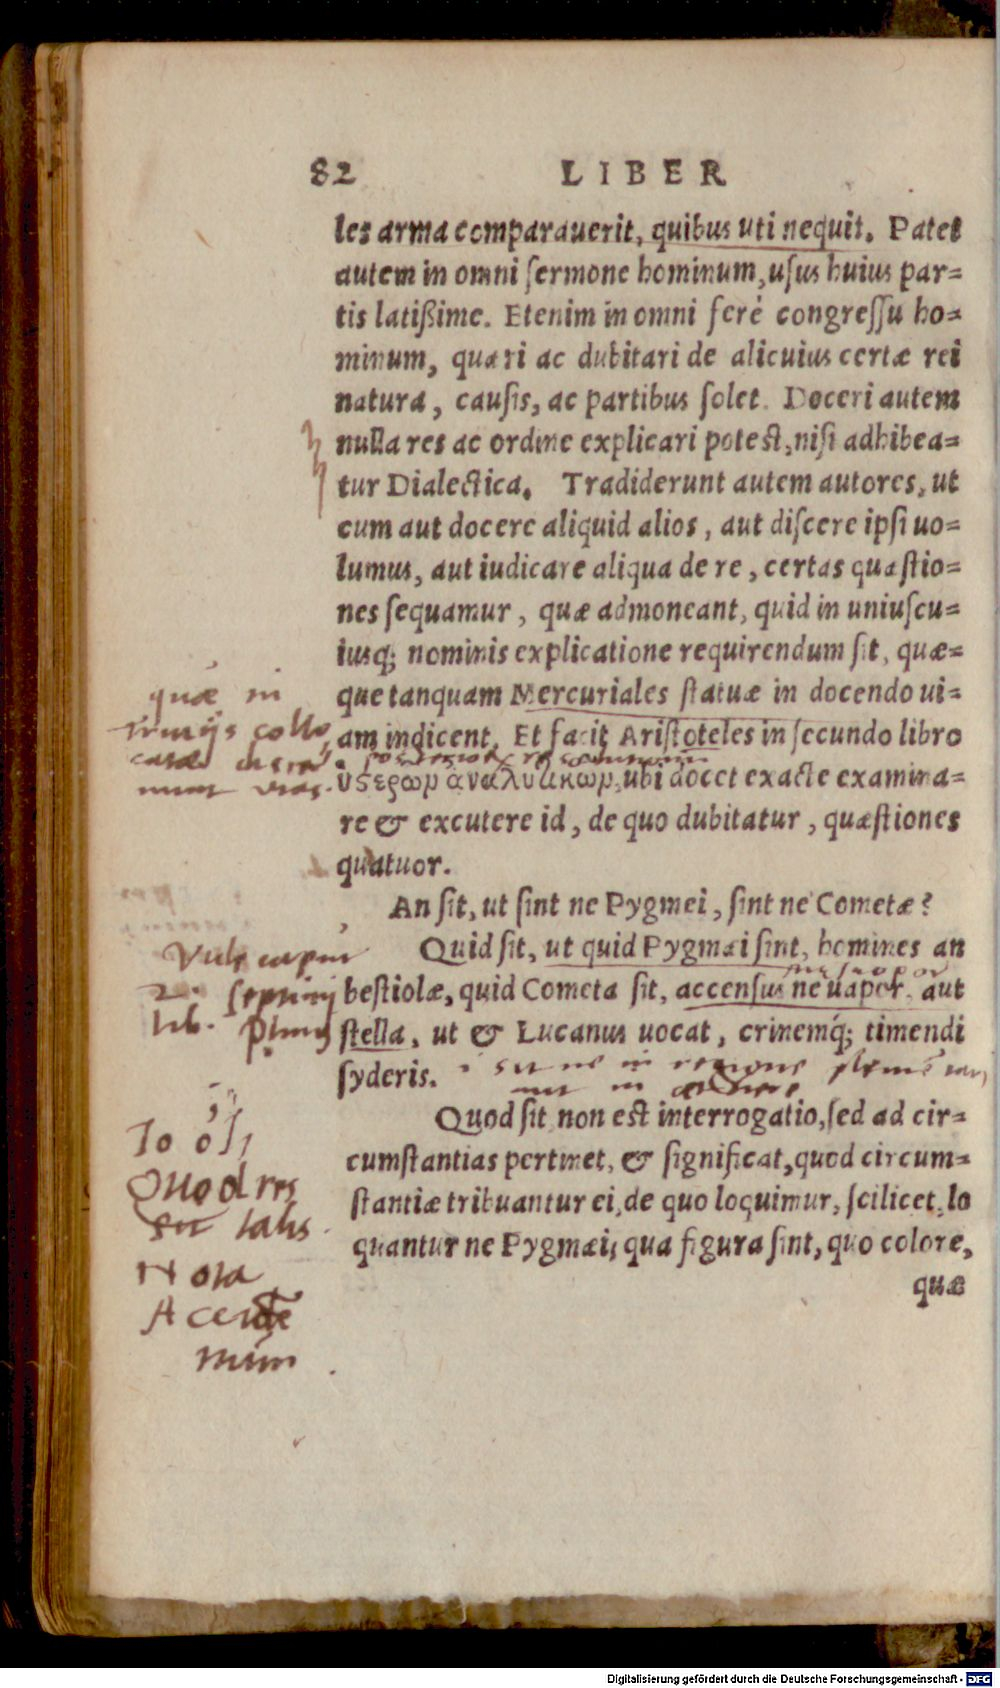 82 LIBER
les arma comparauerit, quibus uti nequit. Patet
autem in omni sermone hominum, usus huius par=
tis latißime. Etenim in omni ferè congressu ho=
minum, quæri ac dubitari de alicuius certæ rei
natura, causis, ac partibus solet. Doceri autem
nulla res ac ordine explicari potest, nisi adhibea=
tur Dialectica. Tradiderunt autem autores, ut
cum aut docere aliquid alios, aut discere ipsi uo=
lumus, aut iudicare aliqua de re, certas quæstio=
nes sequamur, quæ admoneant, quid in uniuscu=
iusq; nominis explicatione requirendum sit, quæ=
que tanquam Mercuriales statuæ in docendo ui=
am indicent. Et facit Aristoteles in secundo libro
ὑςερωμ ἀναλυτικωμ, ubi docet exacte examina=
re & excutere id, de quo dubitatur, quæstiones
quatuor.
An sit, ut sint ne Pygmei, sint ne Cometæ?
Quid sit, ut quid Pygmæi sint, homines an
bestiolæ, quid Cometa sit, accensus ne uapor, aut
stella, ut & Lucanus uocat, crinemq́; timendi
syderis.
Quod sit non est interrogatio, sed ad cir=
cumstantias pertinet, & significat, quod circum=
stantiæ tribuantur ei, de quo loquimur, scilicet, lo
quantur ne Pygmæi, qua figura sint, quo colore,
quæ
quæ in
triuijs collo
catæ
uias.
Vide caput
2. septimi
lib. Plinij
Quod res
sit talis
Nota
Digitalisierung gefördert durch die Deutsche Forschungsgemeinschaft - DFG